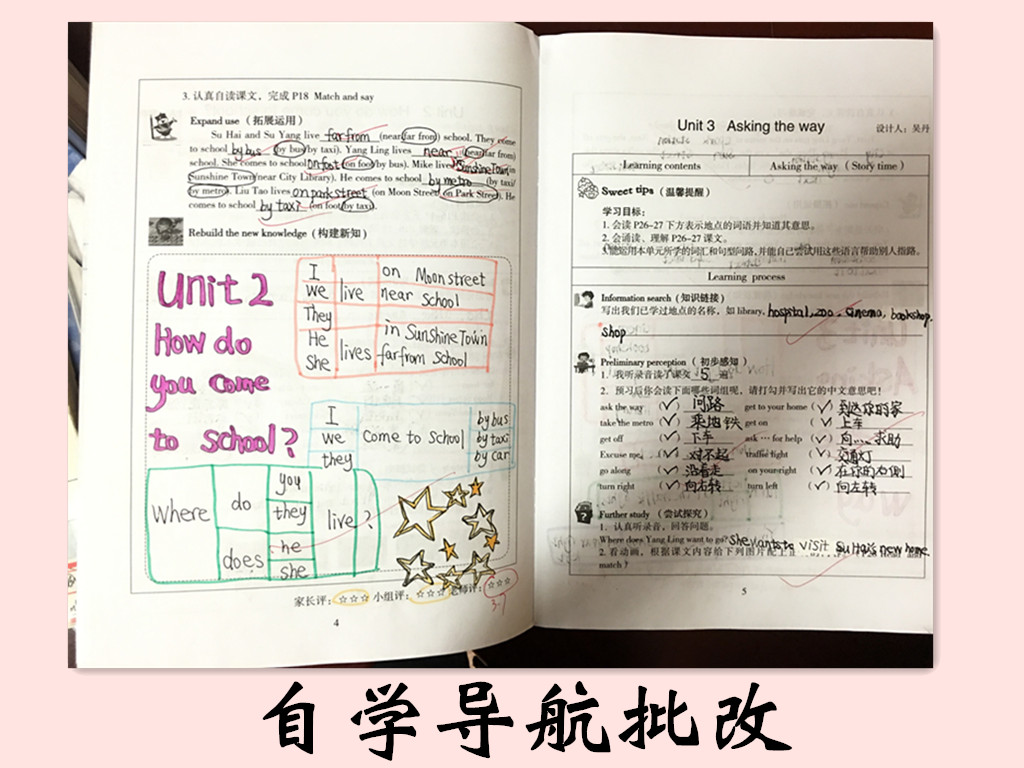 3. 认真自读课文，完成 P18 Match and say
Expand use（拓展运用）
Su Hai and Su Yang live far from (near/far from) school. They come
to school by bus (by bus/by taxi). Yang Ling lives near (near/far from)
school. She comes to school on foot (on foot/by bus). Mike lives SunshineTown (in
Sunshine Town/near City Library). He comes to school by metro (by taxi/
by metro). Liu Tao lives on park street (on Moon Street/on Park Street). He
comes to school by taxi (on foot/by taxi).
Rebuild the new knowledge（构建新知）
Unit 2
How do
you come
to school?
I
we
They
live
on Moon street
near school
He
she
lives
in Sunshine Town
far from school
I
we
they
come to school
by bus
by taxi
by car
Where
do
does
you
they
he
she
live?
家长评：☆☆☆ 小组评：☆☆☆ 老师评：☆☆☆
3.7
4
Unit 3 Asking the way
设计人：吴丹
Learning contents
Asking the way（Story time）
Sweet tips（温馨提醒）
学习目标：
1. 会读 P26-27 下方表示地点的词语并知道其意思。
2. 会诵读、理解 P26-27 课文。
3. 能运用本单元所学的词汇和句型问路，并能自己尝试用这些语言帮助别人指路。
Learning process
Information search（知识链接）
写出我们已学过地点的名称，如 library, hospital, zoo, cinema, bookshop,
shop
Preliminary perception（初步感知）
1. 我听录音读了课文 5 遍
2. 预习后你会读下面哪些词组呢，请打勾并写出它的中文意思吧！
ask the way (✓) 问路 get to your home (✓) 到达你的家
take the metro (✓) 乘地铁 get on (✓) 上车
get off (✓) 下车 ask … for help (✓) 向…求助
Excuse me (✓) 对不起 traffic light (✓) 交通灯
go along (✓) 沿着走 on your right (✓) 在你的右侧
turn right (✓) 向右转 turn left (✓) 向左转
Further study（尝试探究）
1. 认真听录音，回答问题。
Where does Yang Ling want to go? She wants to visit Su Hai's new home.
2. 看动画，根据课文内容给下列图片配上
match？
5
自学导航批改